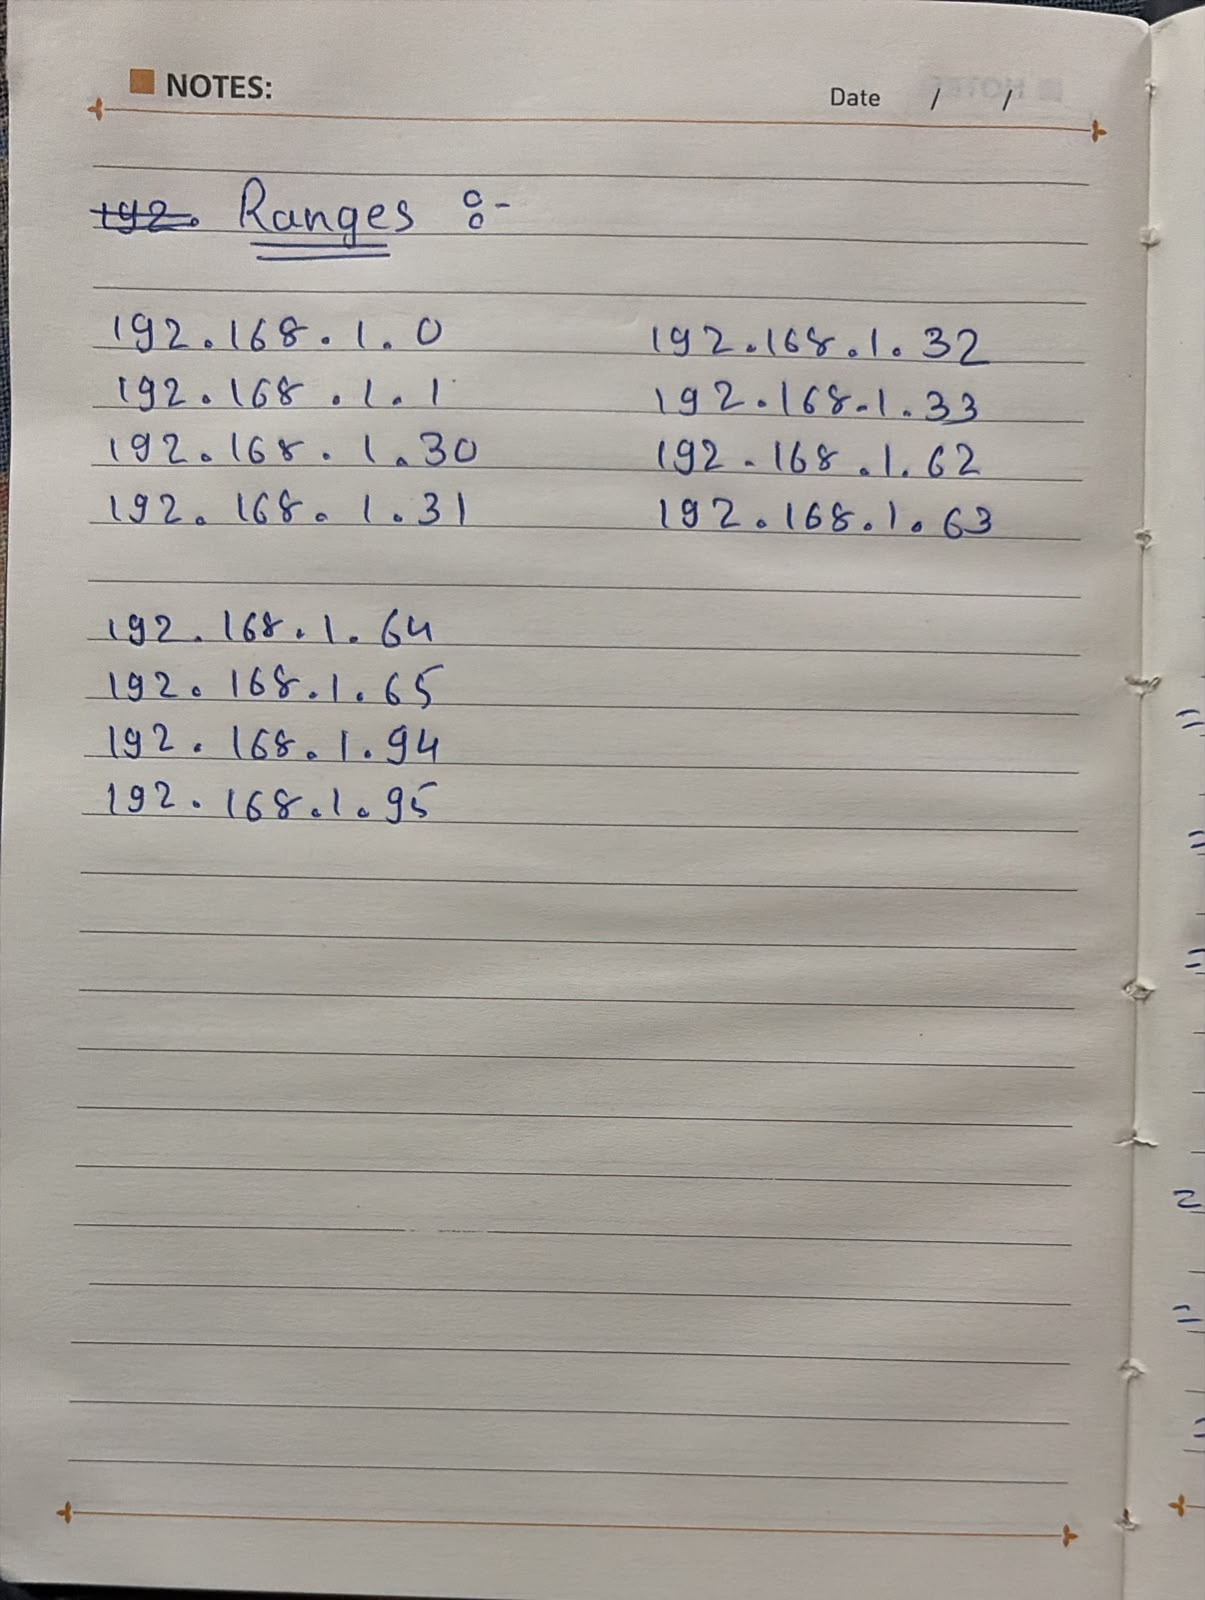 NOTES:
Date / /
192. Ranges :-
192.168.1.0
192.168.1.1
192.168.1.30
192.168.1.31
192.168.1.32
192.168.1.33
192.168.1.62
192.168.1.63
192.168.1.64
192.168.1.65
192.168.1.94
192.168.1.95